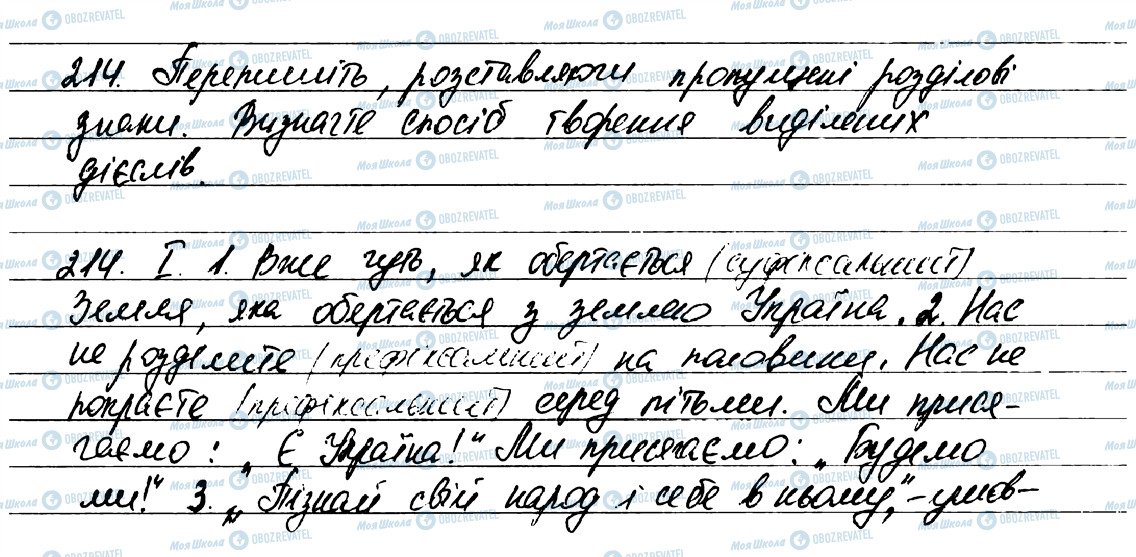 214. Перепишіть, розставляючи пропущені розділові
знаки. Визначте спосіб творення виділених
дієслів.
214. I. 1. Вже чуть, як обертається (суфіксальний)
Земля, яка обертається з землею Україна. 2. Нас
не розділите (префіксальний) на половини. Нас не
покраєте (префіксальний) серед пітьми. Ми прися-
гаємо: „Є Україна!“ Ми присягаємо: „Будемо
ми!“ 3. „Пізнай свій народ і себе в ньому,“ – умов-